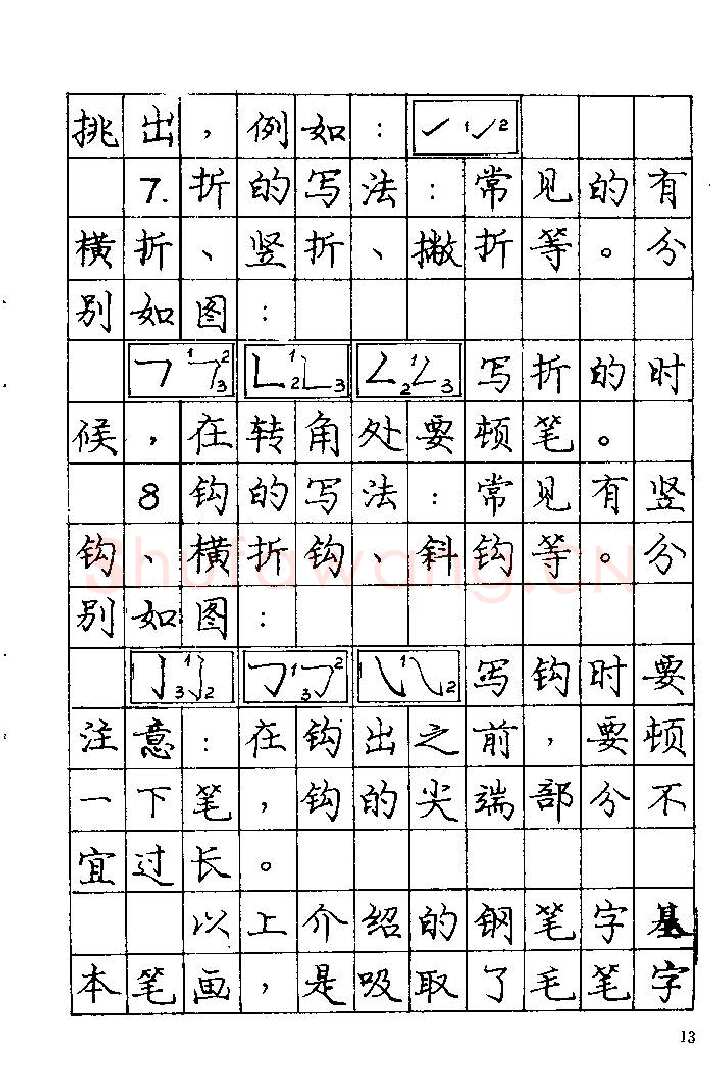 挑出，例如： 1 2
7.折的写法：常见的有
横折、竖折、撇折等。分
别如图：
1 2 3 1 2 3 2 1 3 写折的时
候，在转角处要顿笔。
8 钩的写法：常见有竖
钩、横折钩、斜钩等。分
别如图：
3 1 2 1 3 2 1 2 写钩时要
注意：在钩出之前，要顿
一下笔，钩的尖端部分不
宜过长。
以上介绍的钢笔字基
本笔画，是吸取了毛笔字
13
Shufawang.CN